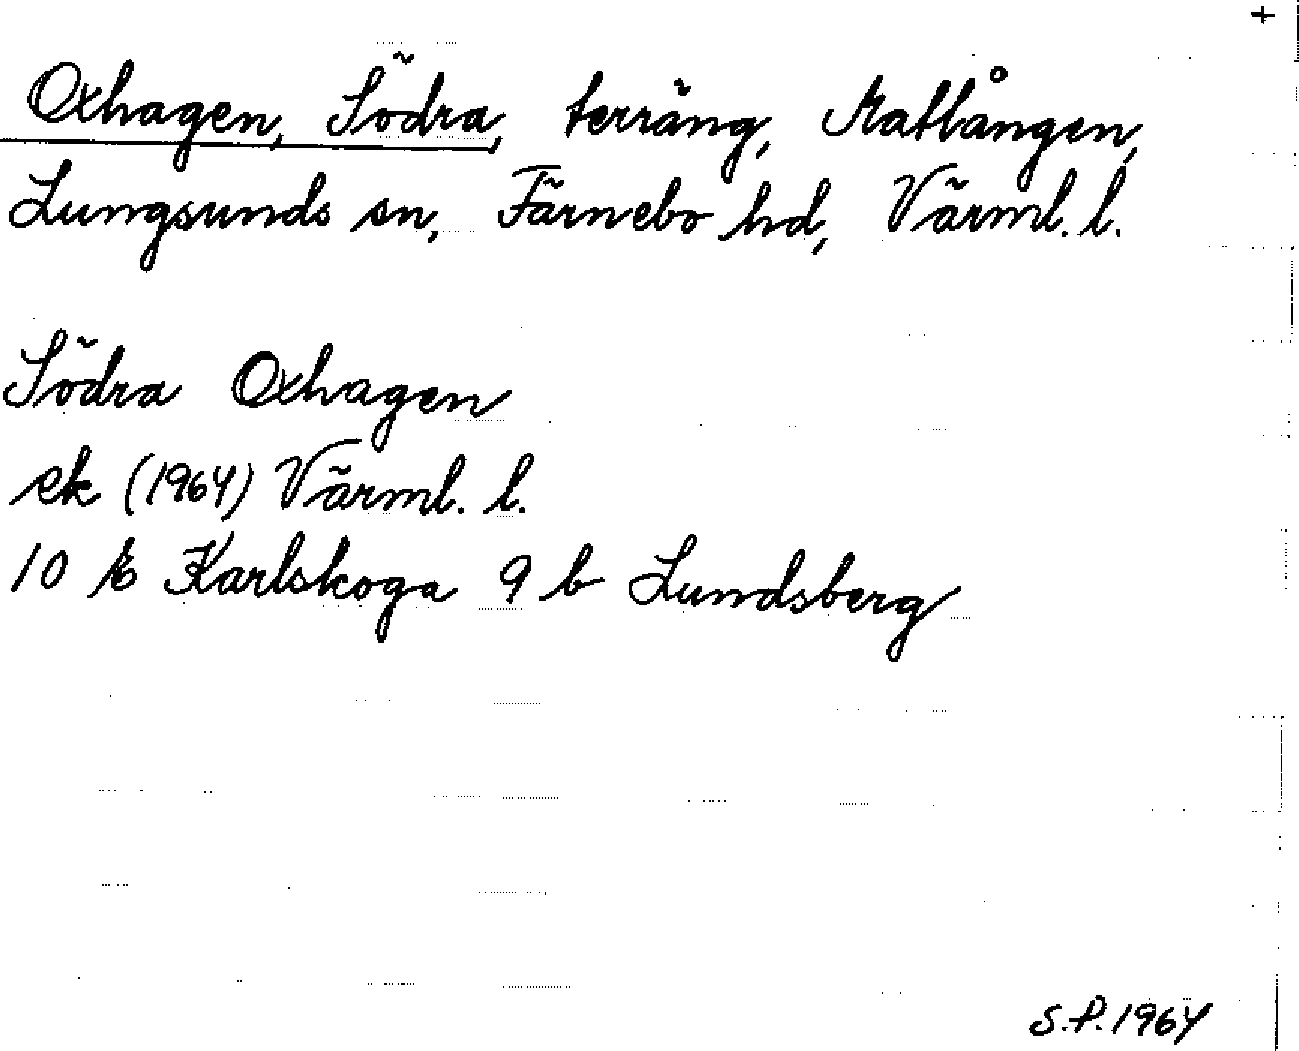 +
Oxhagen, Södra, terräng, Matlången,
Lungsunds sn, Färnebo hd, Värml. l.
Södra Oxhagen
ek (1964) Värml. l.
10 E Karlskoga 9 b Lundsberg
S.P. 1964